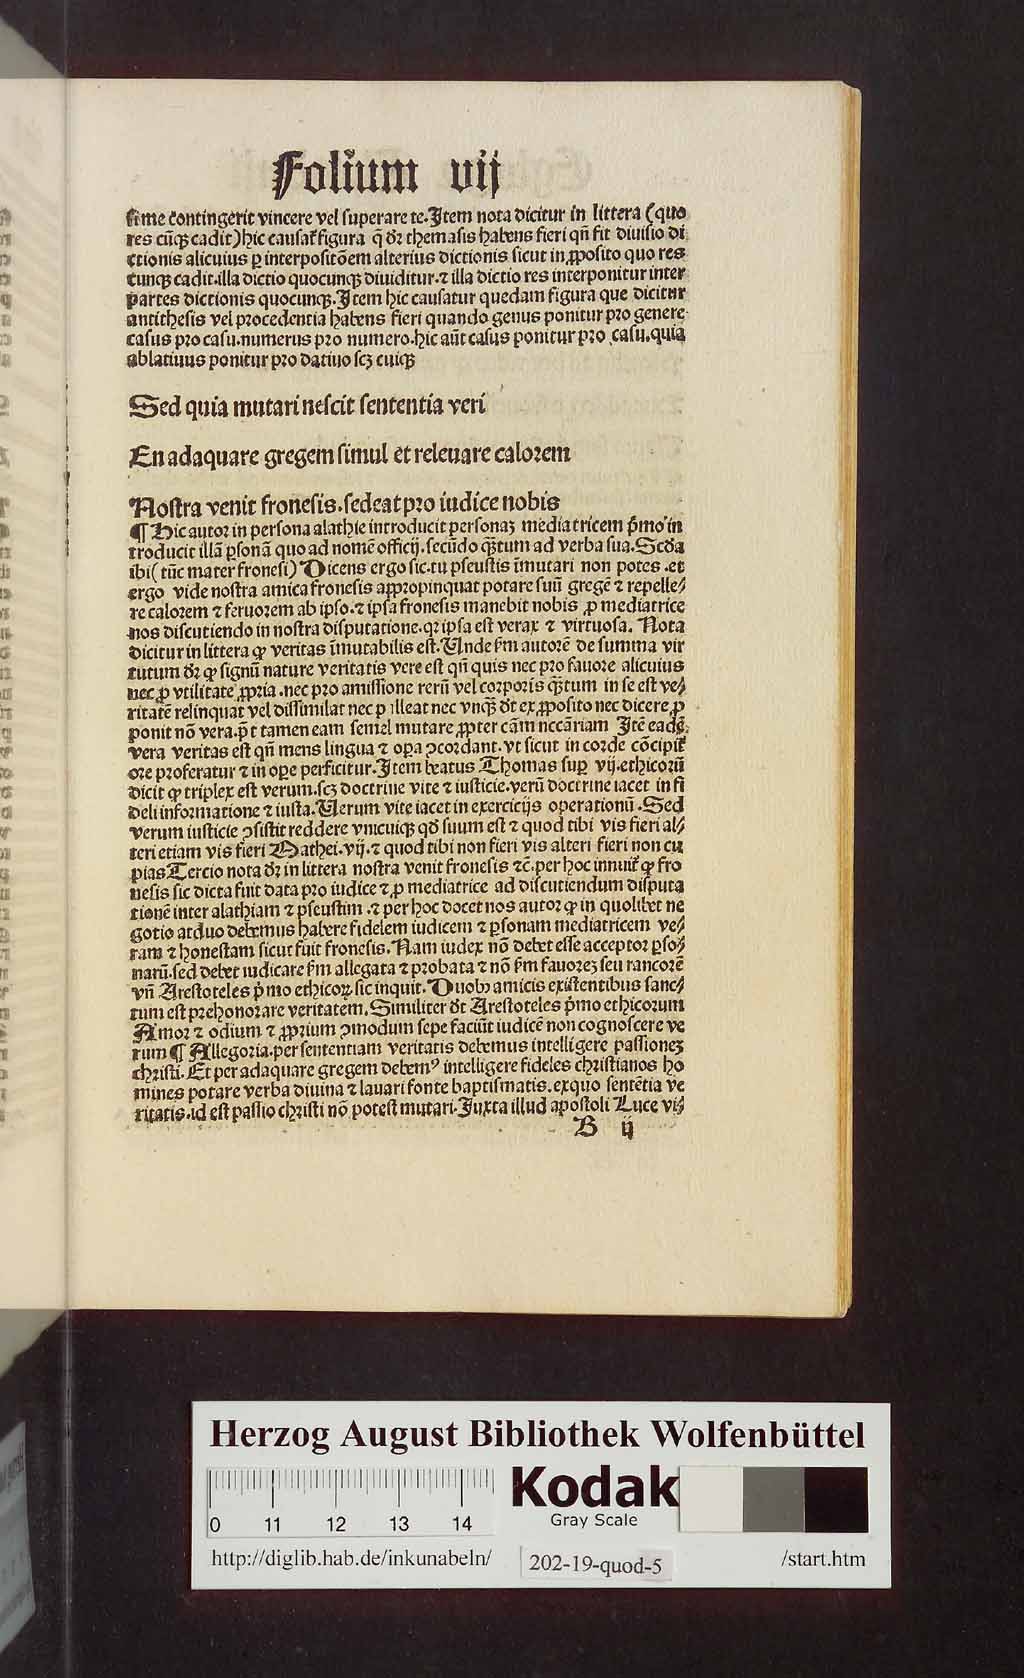 Foliũm vij
si me contingerit vincere vel superare te. Item nota dicitur in littera (quo
res cũqꝫ cadit) hic causat᷑ figura q̃ dr̃ themasis habens fieri qñ fit diuisio di
ctionis alicuius ꝑ interpositõem alterius dictionis sicut in ꝓposito quo res
cunqꝫ cadit. illa dictio quocunqꝫ diuiditur. ⁊ illa dictio res interponitur inter
partes dictionis quocunqꝫ. Item hic causatur quedam figura que dicitur
antithesis vel procedentia habens fieri quando genus ponitur pro genere
casus pro casu. numerus pro numero. hic aũt casus ponitur pro casu. quia
ablatiuus ponitur pro datiuo scꝫ cuiqꝫ
Sed quia mutari nescit sententia veri
En adaquare gregem simul et releuare calorem
Nostra venit fronesis. sedeat pro iudice nobis
¶ Hic autor in persona alathie introducit personaꝫ mediatricem p̃mo in
troducit illã ꝑsonã quo ad nomẽ officij. secũdo qꝫtum ad verba sua. Scd̃a
ibi (tũc mater fronesi) Dicens ergo sic. tu pseustis ĩmutari non potes. et
ergo vide nostra amica fronesis appropinquat potare suũ gregẽ ⁊ repelle⸗
re calorem ⁊ feruorem ab ipso. ⁊ ipsa fronesis manebit nobis ꝓ mediatrice
nos discutiendo in nostra disputatione. qꝛ ipsa est verax ⁊ virtuosa. Nota
dicitur in littera ꝙ veritas ĩmutabilis est. Unde s̃m autorẽ de summa vir
tutum dr̃ ꝙ signũ nature veritatis vere est qñ quis nec pro fauore alicuius
nec ꝓ vtilitate ꝓpria. nec pro amissione rerũ vel corporis qꝫtum in se est ve⸗
ritatẽ relinquat vel dissimilat nec p illeat nec vnqꝫ dt̃ ex ꝓposito nec dicere ꝓ
ponit nõ vera. p̃t tamen eam semel mutare ꝓpter cãm nccãriam Itẽ eadẽ
vera veritas est qñ mens lingua ⁊ oꝑa ꝯcordant. vt sicut in corde cõcipit᷑
ore proferatur ⁊ in oꝑe perficitur. Item beatus Thomas suꝑ vij. ethicorũ
dicit ꝙ triplex est verum. scꝫ doctrine vite ⁊ iusticie. verũ doctrine iacet in fi
deli informatione ⁊ iusta. Uerum vite iacet in exercicijs operationũ. Sed
verum iusticie ꝯsistit reddere vnicuiqꝫ qd̃ suum est ⁊ quod tibi vis fieri al⸗
teri etiam vis fieri Mathei. vij. ⁊ quod tibi non fieri vis alteri fieri non cu
pias Tercio nota dr̃ in littera nostra venit fronesis ⁊c̃. per hoc innuit᷑ ꝙ fro
nesis sic dicta fuit data pro iudice ⁊ ꝓ mediatrice ad discutiendum disputa
tionẽ inter alathiam ⁊ pseustim. ⁊ per hoc docet nos autor ꝙ in quolibet ne
gotio arduo debemus habere fidelem iudicem ⁊ ꝑsonam mediatricem ve⸗
ram ⁊ honestam sicut fuit fronesis. Nam iudex nõ debet esse acceptor ꝑso⸗
narũ. sed debet iudicare s̃m allegata ⁊ probata ⁊ nõ s̃m fauoreꝫ seu rancorẽ
vñ Arestoteles p̃mo ethicoꝝ sic inquit. Duobꝰ amicis existentibus sanc⸗
tum est prehonorare veritatem. Similiter dt̃ Arestoteles p̃mo ethicorum
Amor ⁊ odium ⁊ ꝓprium ꝯmodum sepe faciũt iudicẽ non cognoscere ve
rum ¶ Allegoria. per sententiam veritatis debemus intelligere passioneꝫ
christi. Et per adaquare gregem debemꝰ intelligere fideles christianos ho
mines potare verba diuina ⁊ lauari fonte baptismatis. exquo sentẽtia ve
ritatis. id est passio christi nõ potest mutari. Iuxta illud apostoli Luce vi⸗
B ij
Herzog August Bibliothek Wolfenbüttel
Kodak
Gray Scale
0 11 12 13 14
http://diglib.hab.de/inkunabeln/ 202-19-quod-5 /start.htm